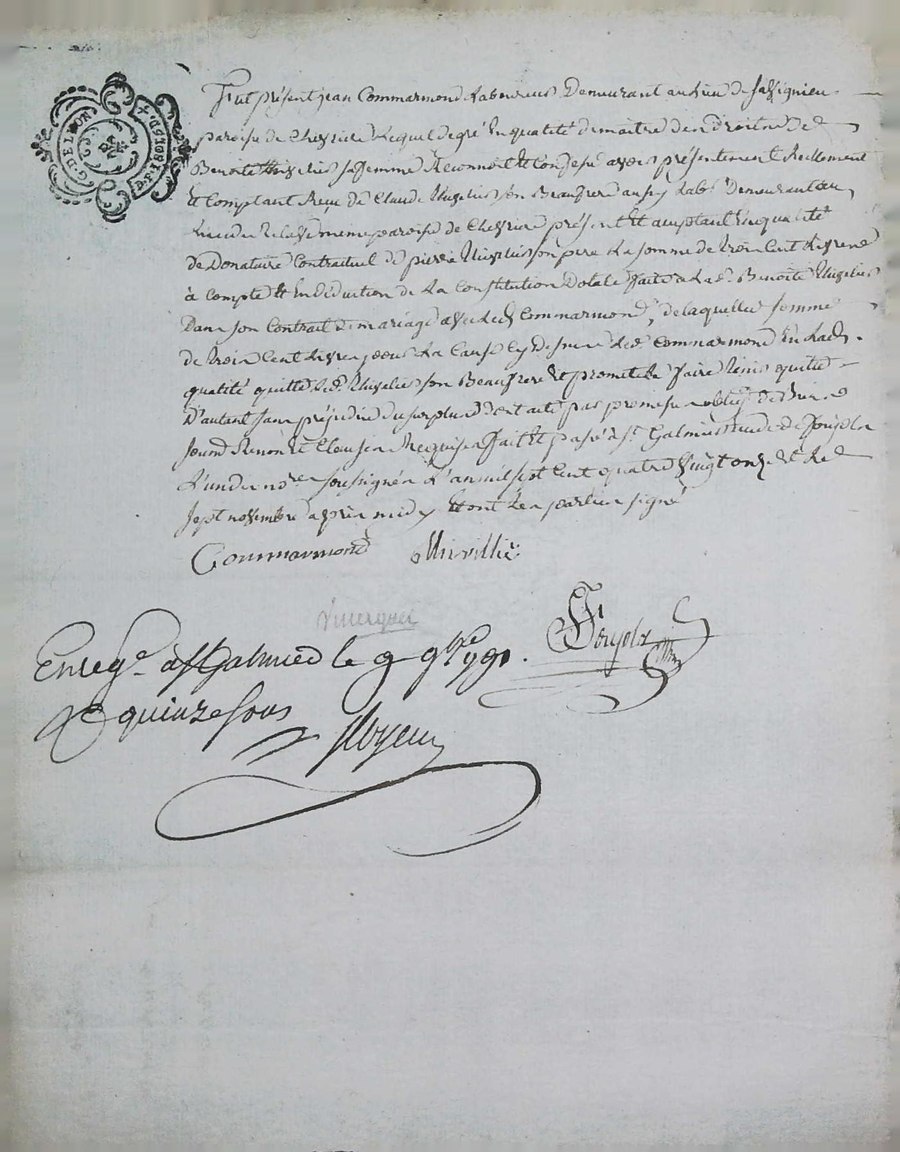 G. DE LYON
Fut présent jean Commarmond Laboureur Demeurant au Lieu de
paroise de Chevriere Lequel degré En qualité de maitre des Droits de
Benoite sa femme Reconnoit Et Confesse avoir présentement Reellement
Et Comptant Reçu de Claude son Beaufrere aussy Labr Demeurant au
Lieu de meme paroise de Chevriere présent Et acceptant En qualité
de Donataire Contractuel de pierre son pere La somme de trois Cent Livres
à Compte Et En Déduction de La Constitution Dotale faite a Lad. Benoite
Dans son Contrat de mariage avec Led. Commarmond, de laquelle somme
de trois Cent Livres pour La Cause Cy Dessus Led. Commarmond En Lad.
qualité quitte Led. son Beaufrere Et promet Le faire tenir quitte
D'autant sans préjudice du surplus dont acte par promesse oblig. de Biens
Renon Et Clauses Requises fait Et passé à St. Galmier Etude de
L'un des nres soussignés L'an mil sept Cent quatre Vingt onze Et Le
sept novembre après midy Et ont Les parties signé
Commarmond
Enregé. à St Galmier le 9 9bre 1791.
Rç quinze sous